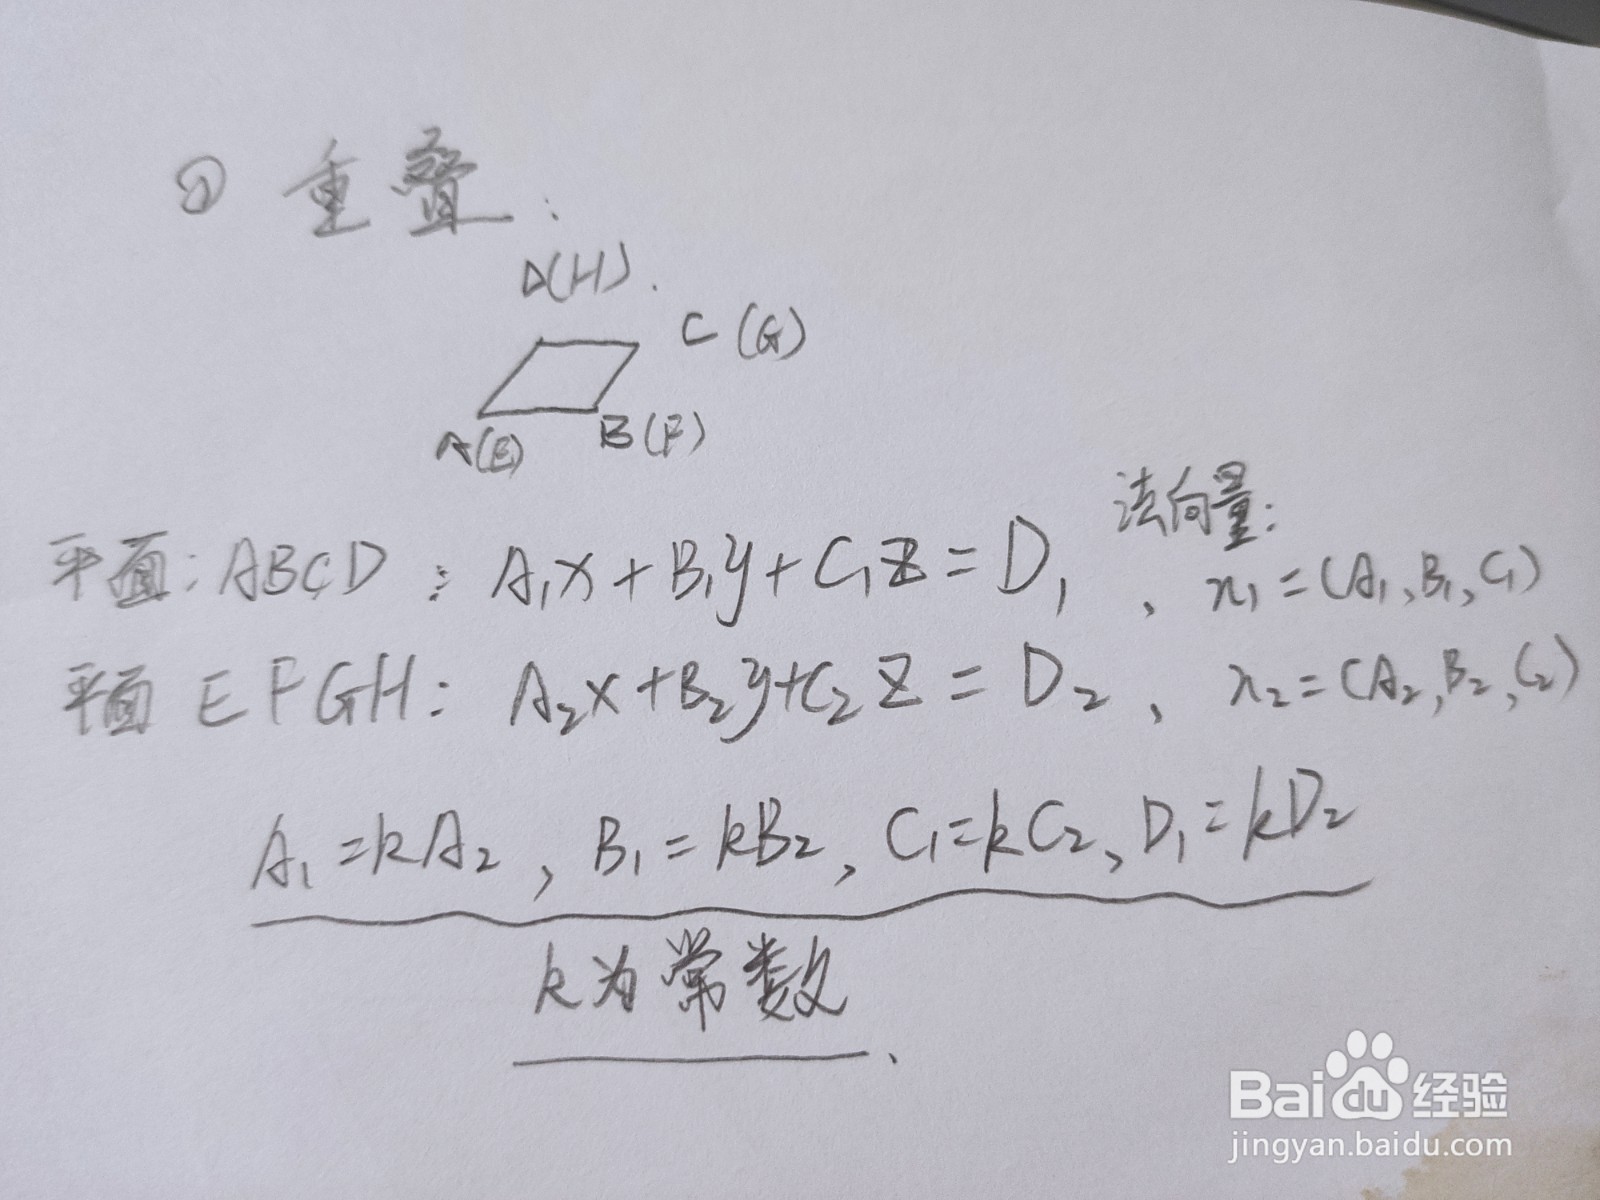 ① 重叠:
D(H).
C(G)
A(E)
B(F)
法向量:
平面:ABCD: A₁x+B₁y+C₁z=D₁, n₁=(A₁,B₁,C₁)
平面EFGH: A₂x+B₂y+C₂z=D₂, n₂=(A₂,B₂,C₂)
A₁=kA₂, B₁=kB₂, C₁=kC₂, D₁=kD₂
k为常数.
Baidu经验
jingyan.baidu.com